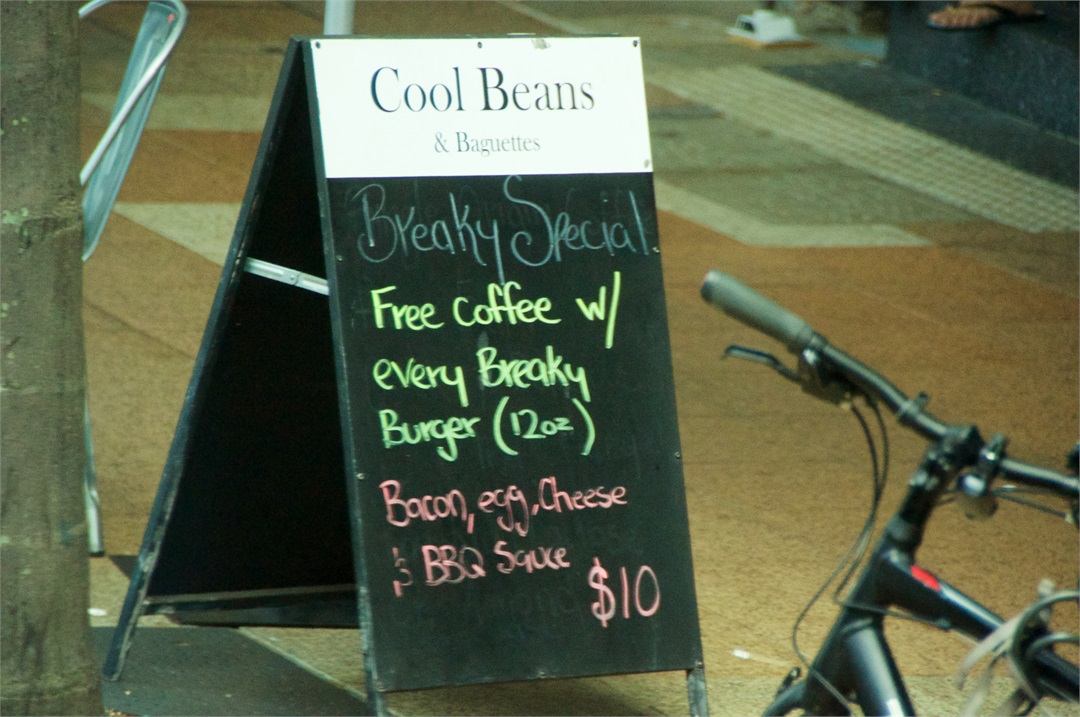 Cool Beans
& Baguettes
Breaky Special
Free coffee w/
every Breaky
Burger (12oz)
Bacon, egg, Cheese
& BBQ Sauce
$10